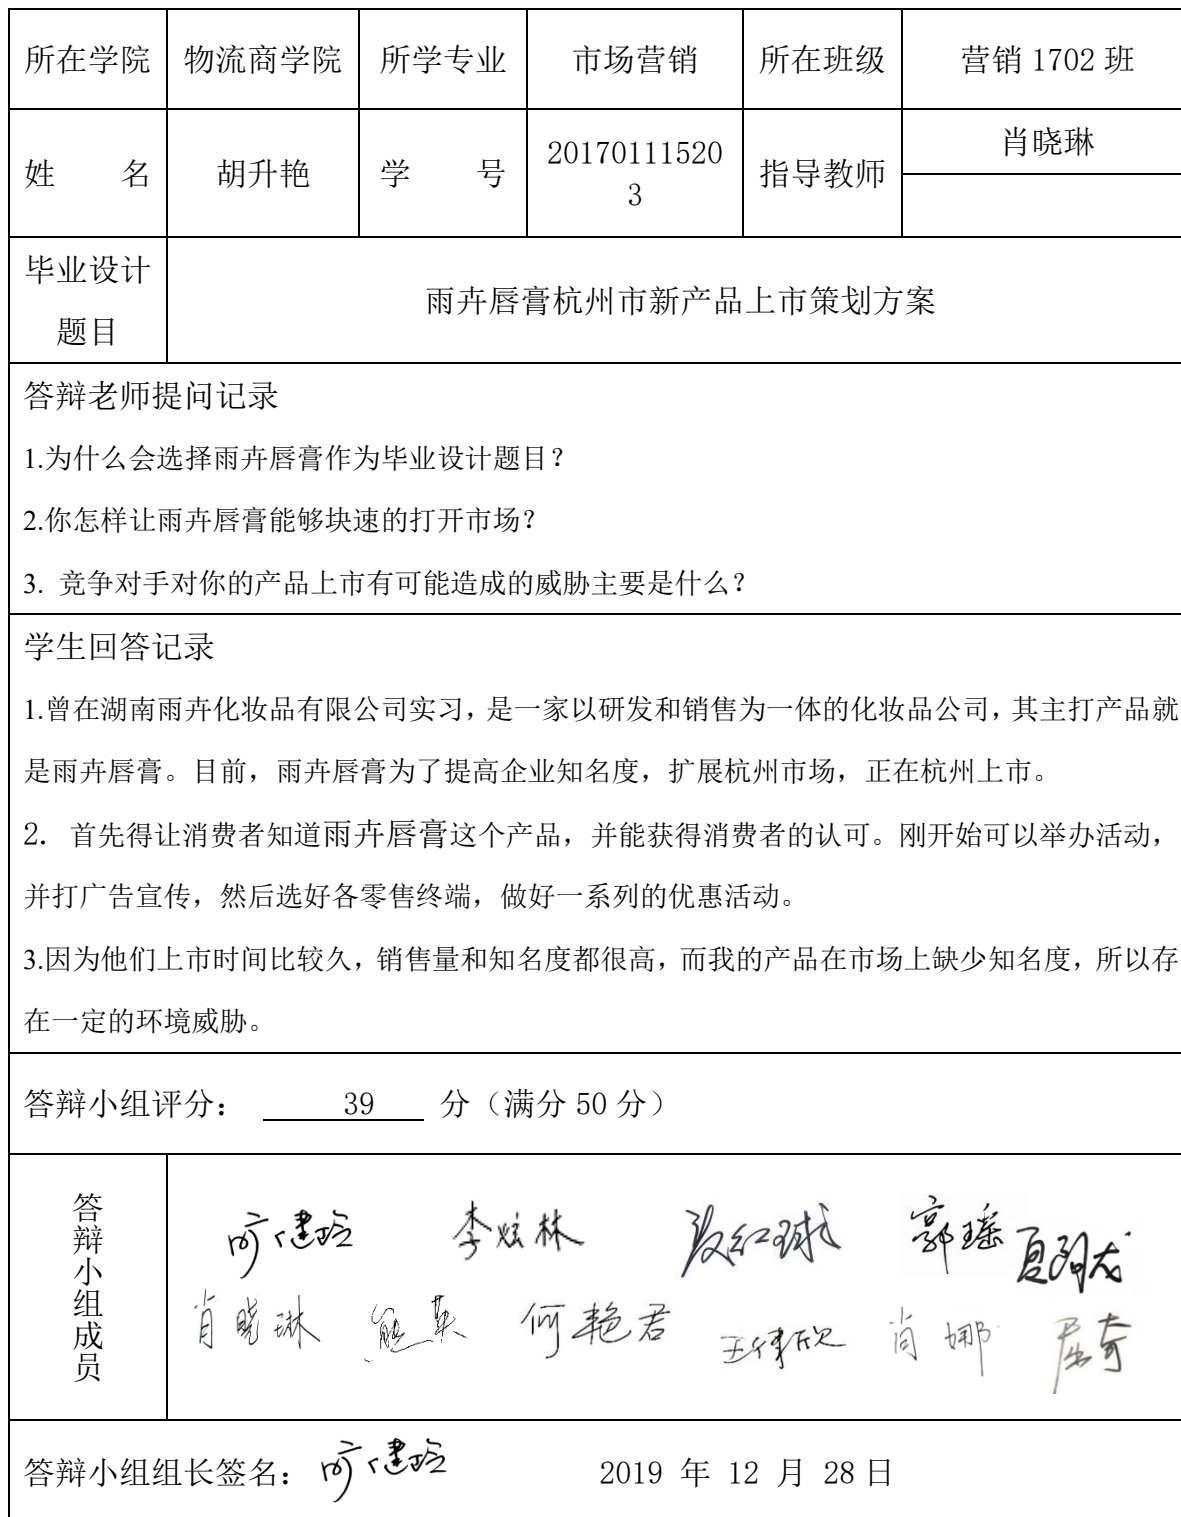 所在学院 物流商学院 所学专业 市场营销 所在班级 营销 1702 班
姓 名 胡升艳 学 号 20170111520 指导教师 肖晓琳
3
毕业设计
题目
雨卉唇膏杭州市新产品上市策划方案
答辩老师提问记录
1.为什么会选择雨卉唇膏作为毕业设计题目？
2.你怎样让雨卉唇膏能够块速的打开市场？
3. 竞争对手对你的产品上市有可能造成的威胁主要是什么？
学生回答记录
1.曾在湖南雨卉化妆品有限公司实习，是一家以研发和销售为一体的化妆品公司，其主打产品就
是雨卉唇膏。目前，雨卉唇膏为了提高企业知名度，扩展杭州市场，正在杭州上市。
2. 首先得让消费者知道雨卉唇膏这个产品，并能获得消费者的认可。刚开始可以举办活动，
并打广告宣传，然后选好各零售终端，做好一系列的优惠活动。
3.因为他们上市时间比较久，销售量和知名度都很高，而我的产品在市场上缺少知名度，所以存
在一定的环境威胁。
答辩小组评分： 39 分（满分 50 分）
答辩小组成员
李炫林 郭瑶
肖晓琳 熊英 何艳君 肖娜 屈奇
答辩小组组长签名：
2019 年 12 月 28 日